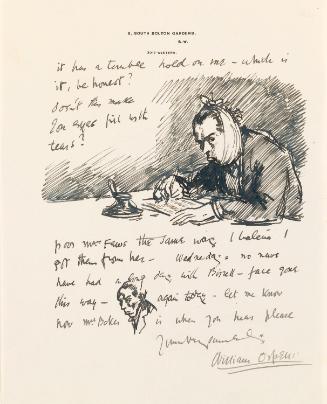 8, SOUTH BOLTON GARDENS.
S.W.
it has a terrible hold on me – which is
it, be honest?
doesn't this make
you eyes fill with
tears?
poor Mrs the same way I believe I
got them from her – Wednesday – no news
have had a long day with – face gone
this way – again today – let me know
how Mrs is when you hear please
William Orpen